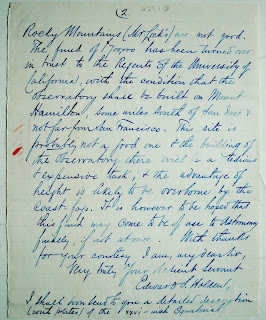 (2
Rocky Mountains (Mr Lick's) are not good.
The fund of $700,000 has been turned over
in trust to the Regents of the University of
California, with the condition that the
Observatory shall be built on Mount
Hamilton, some miles South of San José &
not far from San Francisco. This site is
probably not a good one & the building of
the Observatory there will be a tedious
& expensive task, & the advantage of
height is likely to be overborne by the
Coast fogs. It is however to be hoped that
this fund may come to be of use to Astronomy
finally, if not at once. With thanks
for your courtesy I am, my dear Sir,
Very truly Your obedient Servant
Edward S. Holden.
I shall soon send to you a detailed description
(with plates) of the xxvi-inch Equatorial.